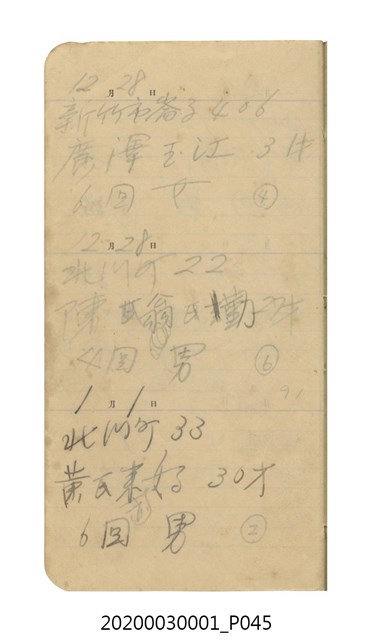 12月28日
新竹市崙子406
廣澤玉江 3才
6回 女 ④
12月28日
北門町22
陳氏翁氏勤 22才
4回 男 ⑥
91
1月1日
北門町33
黃氏來好 30才
6回 男 ②
20200030001_P045